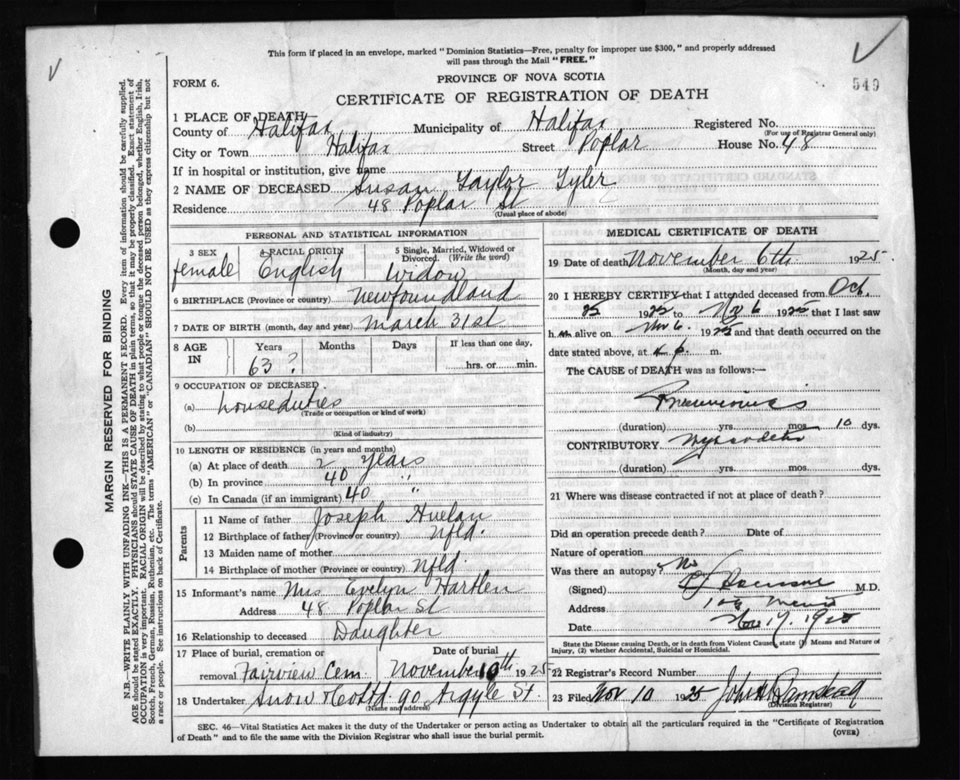 This form if placed in an envelope, marked "Dominion Statistics—Free, penalty for improper use $300," and properly addressed
will pass through the Mail "FREE."
FORM 6.
PROVINCE OF NOVA SCOTIA
549
CERTIFICATE OF REGISTRATION OF DEATH
1 PLACE OF DEATH
County of Halifax Municipality of Halifax Registered No.
(For use of Registrar General only)
City or Town Halifax Street Poplar House No. 48
If in hospital or institution, give name
2 NAME OF DECEASED Susan Taylor Tyler
Residence 48 Poplar St
(Usual place of abode)
PERSONAL AND STATISTICAL INFORMATION
3 SEX 4 RACIAL ORIGIN 5 Single, Married, Widowed or
Divorced. (Write the word)
female English Widow
6 BIRTHPLACE (Province or country) Newfoundland
7 DATE OF BIRTH (month, day and year) March 31st
8 AGE IN Years Months Days If less than one day,
63? hrs. or min.
9 OCCUPATION OF DECEASED
(a) houseduties
(Trade or occupation or kind of work)
(b)
(Kind of industry)
10 LENGTH OF RESIDENCE (in years and months)
(a) At place of death 2 years
(b) In province 40 "
(c) In Canada (if an immigrant) 40 "
Parents
11 Name of father Joseph
12 Birthplace of father (Province or country) Nfld.
13 Maiden name of mother
14 Birthplace of mother (Province or country) Nfld.
15 Informant's name Mrs Evelyn Hartlen
Address 48 Poplar St
16 Relationship to deceased Daughter
17 Place of burial, cremation or Date of burial
removal Fairview Cem. November 10th 1925
18 Undertaker Snow & Co Ltd 90 Argyle St.
(Name and address)
MEDICAL CERTIFICATE OF DEATH
19 Date of death November 6th 1925.
(Month, day and year)
20 I HEREBY CERTIFY that I attended deceased from Oct.
1925 to Nov 6 1925 that I last saw
h alive on Nov 6. 1925 and that death occurred on the
date stated above, at m.
The CAUSE of DEATH was as follows:—
Pneumonia
(duration) yrs. mos. 10 dys.
CONTRIBUTORY
(duration) yrs. mos. dys.
21 Where was disease contracted if not at place of death?
Did an operation precede death? Date of
Nature of operation
Was there an autopsy? No
(Signed) M.D.
Address
Date Nov 1925
State the Disease causing Death, or in death from Violent Causes, state (1) Means and Nature of
Injury, (2) whether Accidental, Suicidal or Homicidal.
22 Registrar's Record Number
23 Filed Nov 10 1925 John
(Division Registrar)
SEC. 46—Vital Statistics Act makes it the duty of the Undertaker or person acting as Undertaker to obtain all the particulars required in the "Certificate of Registration
of Death" and to file the same with the Division Registrar who shall issue the burial permit.
(OVER)
MARGIN RESERVED FOR BINDING
N.B.—WRITE PLAINLY WITH UNFADING INK—THIS IS A PERMANENT RECORD. Every item of information should be carefully supplied.
AGE should be stated EXACTLY. PHYSICIANS should STATE CAUSE OF DEATH in plain terms, so that it may be properly classified. Exact statement of
OCCUPATION is very important. RACIAL ORIGIN will be described by stating to what people or tongue the deceased person belonged, whether English, Irish,
Scotch, French, German, Russian, Ruthenian, etc. The terms "AMERICAN" or "CANADIAN" SHOULD NOT BE USED as they express citizenship but not
a race or people. See instructions on back of Certificate.